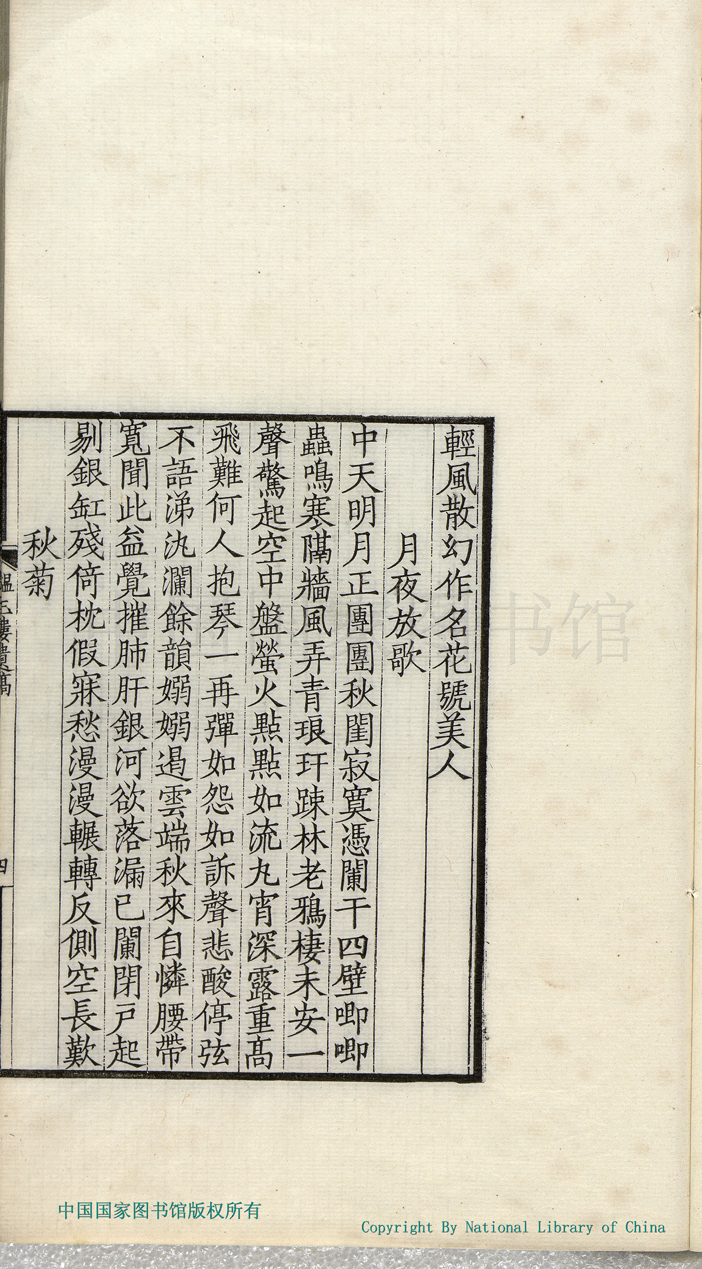 輕風散幻作名花號美人
月夜放歌
中天明月正團團秋閨寂寞憑闌干四壁唧唧
蟲鳴寒隔牆風弄青琅玕踈林老鴉棲未安一
聲驚起空中盤螢火點點如流丸宵深露重髙
飛難何人抱琴一再彈如怨如訴聲悲酸停弦
不語涕汍瀾餘韻嫋嫋遏雲端秋來自憐腰帶
寬聞此益覺摧肺肝銀河欲落漏已闌閉戸起
剔銀缸殘倚枕假寐愁漫漫輾轉反側空長歎
秋菊
韞玉樓遺稿
四
书馆
中国国家图书馆版权所有
Copyright By National Library of China